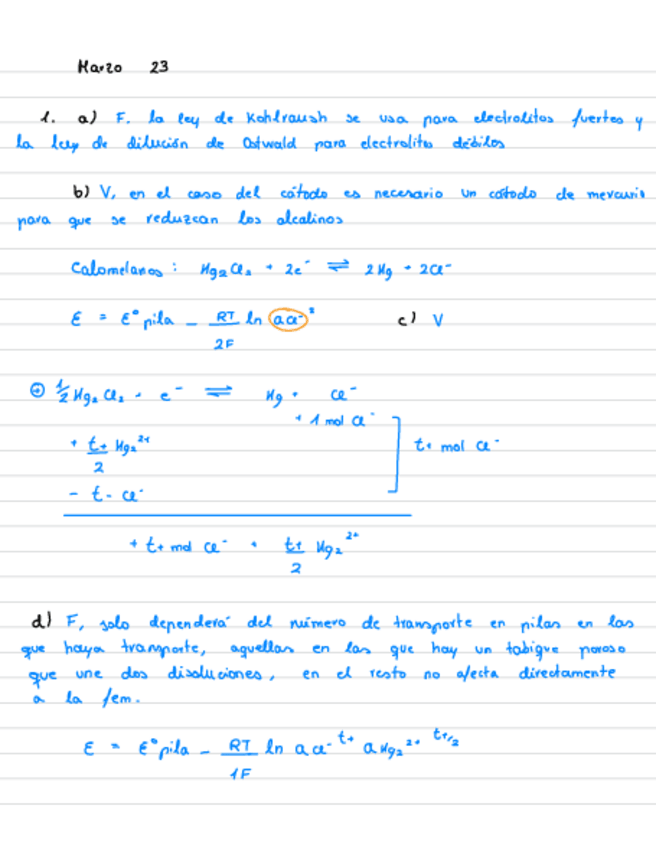 Marzo 23
1. a) F. la ley de Kohlraush se usa para electrolitos fuertes y
la ley de dilución de Ostwald para electrolitos débiles
b) V, en el caso del cátodo es necesario un cátodo de mercurio
para que se reduzcan los alcalinos
Calomelanos : Hg₂Cl₂ + 2e⁻ ⇌ 2Hg + 2Cl⁻
ε = ε° pila - RT/2F ln (aCl⁻)² c) V
⊕ 1/2 Hg₂Cl₂ + e⁻ ⇌ Hg + Cl⁻
+ 1 mol Cl⁻
+ t+/2 Hg₂²⁺ ] t+ mol Cl⁻
- t- Cl⁻
+ t+ mol Cl⁻ + t+/2 Hg₂²⁺
d) F, solo dependerá del número de transporte en pilas en las
que haya transporte, aquellas en las que hay un tabique poroso
que une dos disoluciones, en el resto no afecta directamente
a la fem.
ε = ε° pila - RT/1F ln aCl⁻^t+ aHg₂²⁺^t+/2